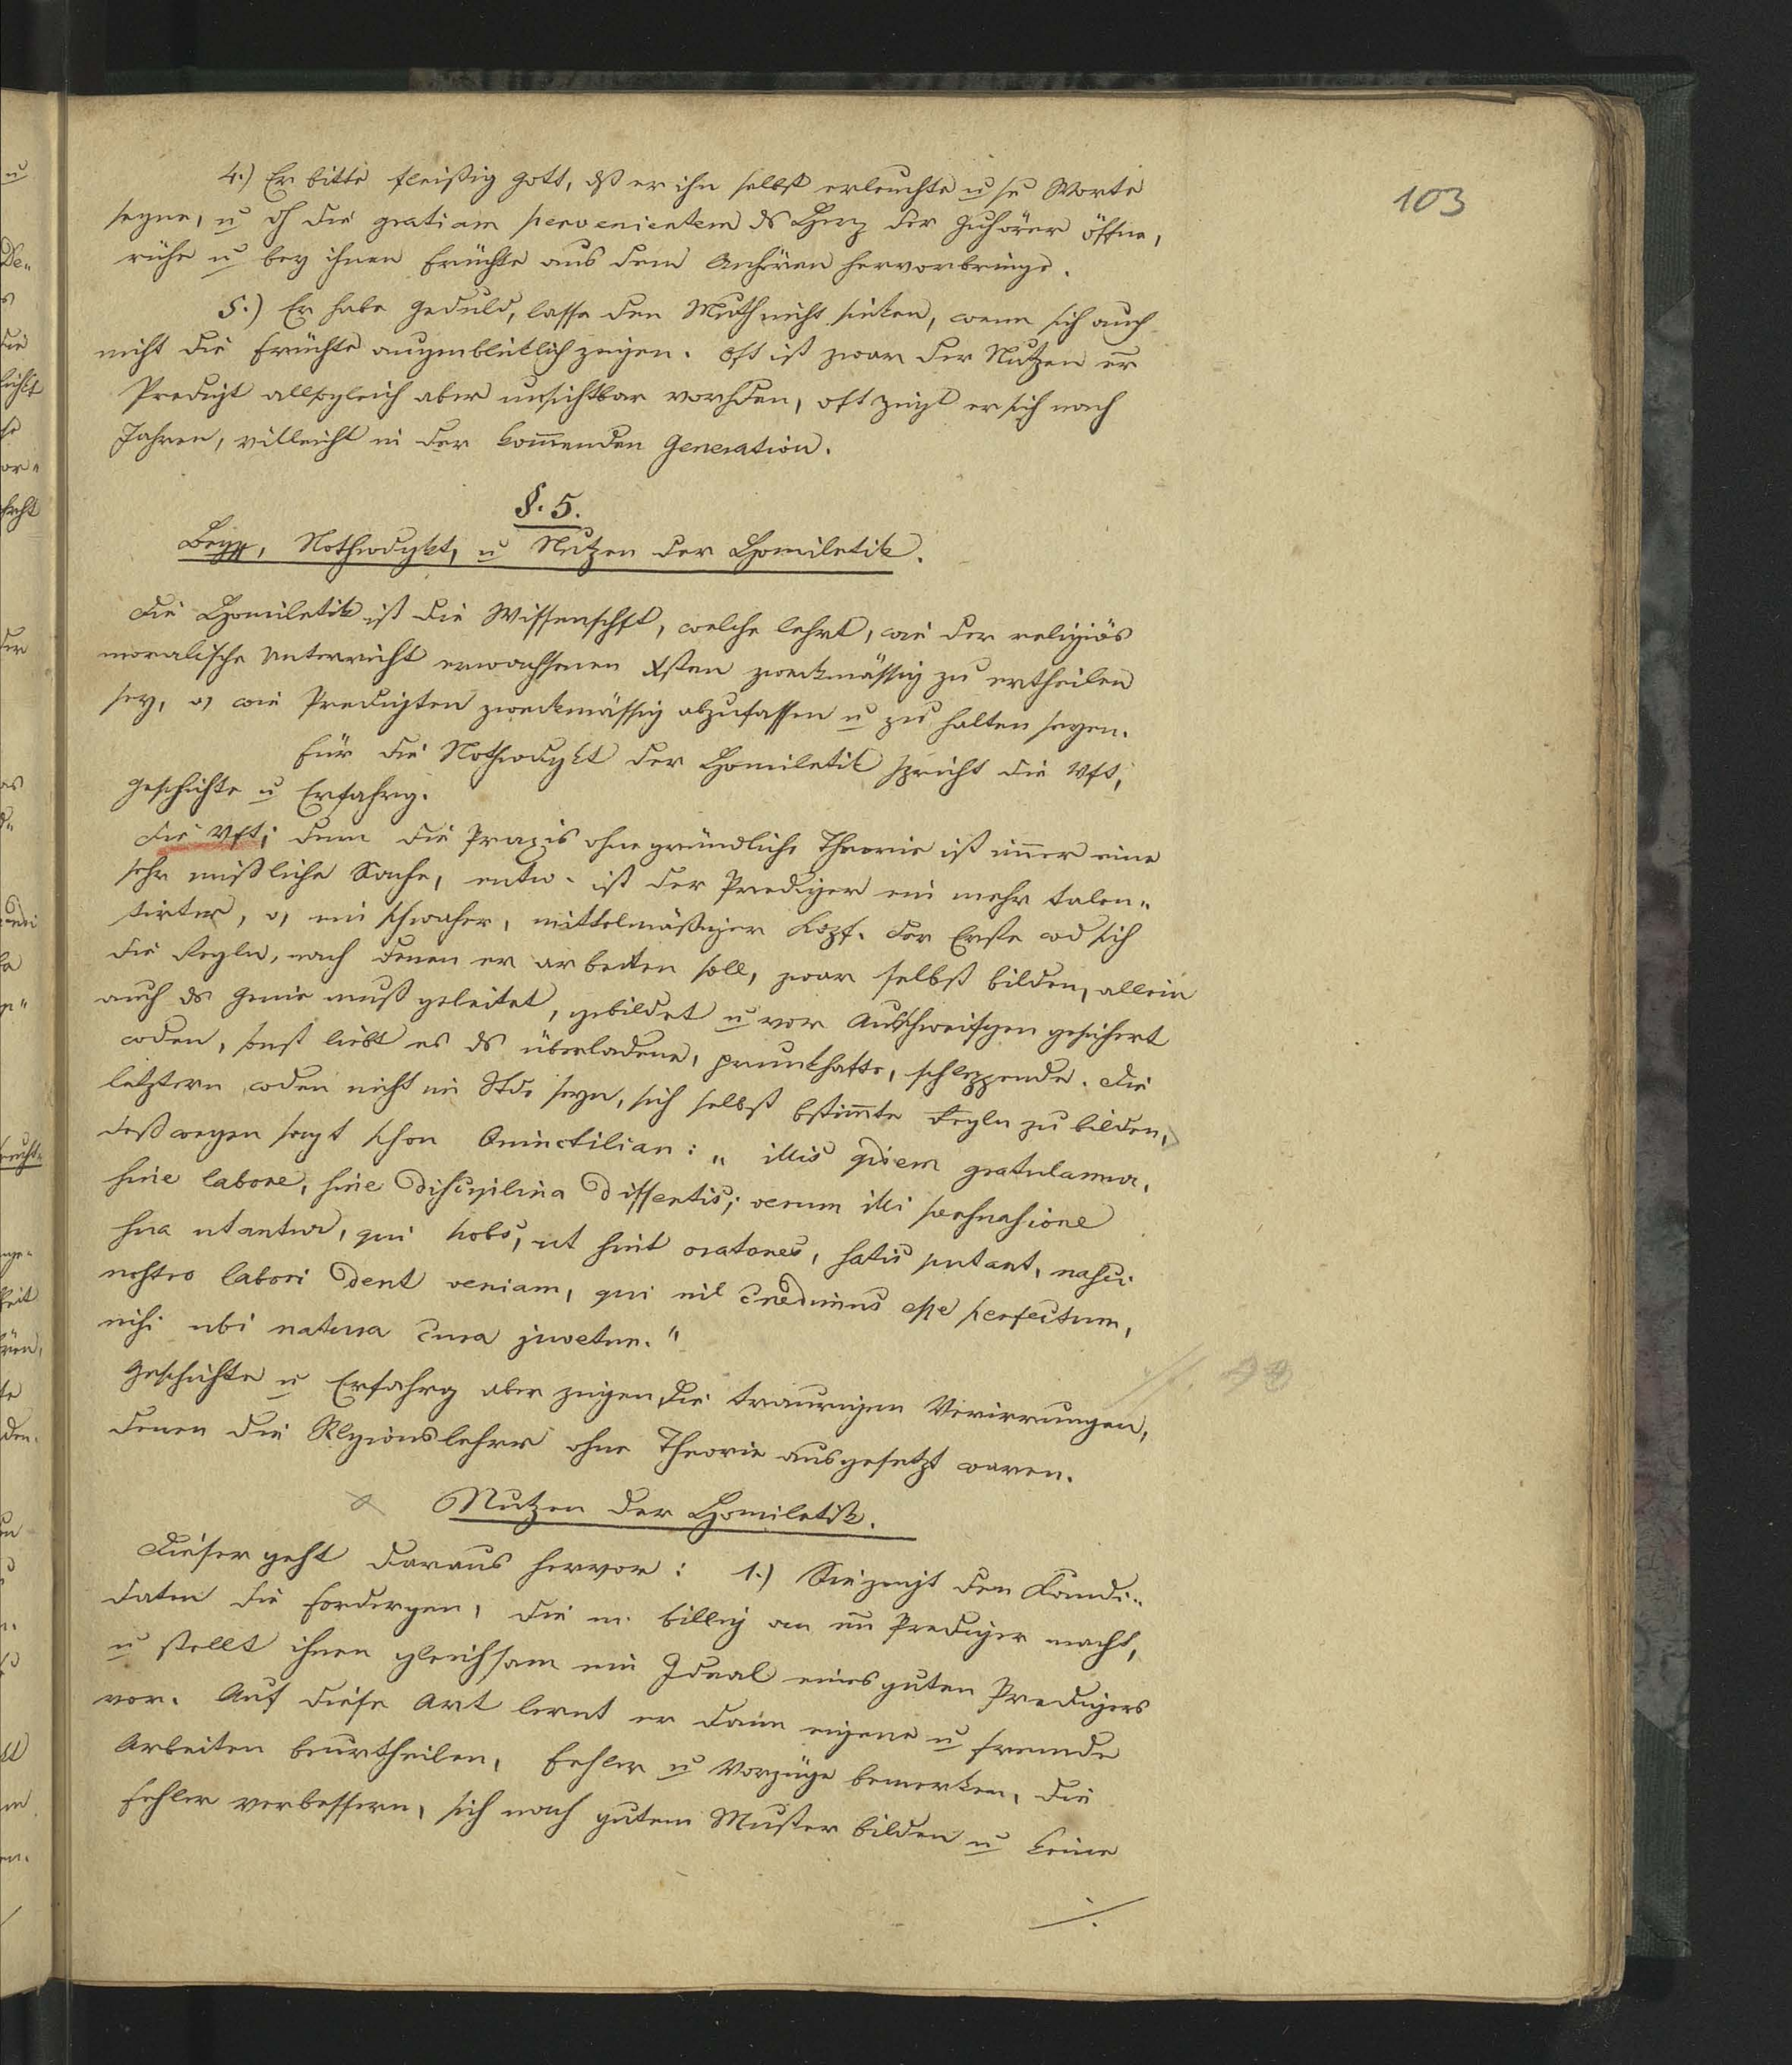 103
4.) Er bitte fleißig Gott, dß er ihn selbst erleuchte u se Worte
segne, u dh die gratiam pervenientem ds Herz der Zuhörer öffne,
rühr u bey ihnen Früchte aus dem Anhören hervorbringe.
5.) Er habe Geduld, lasse den Muth nicht sinken, wenn sich auch
nicht die Früchte augenblicklich zeigen. Oft ist zwar der Nutzen er
Predigt allsogleich aber unsichtbar vorhden, oft zeigt er sich nach
Jahren, villeicht in der kom̄enden Generation.
§. 5.
Begff, Nothwdgkt, u Nutzen der Homiletik.
Die Homiletik ist die Wissenschft, welche lehrt, wie der religiös
moralische Unterricht erwachsenen Xsten zweckmässig zu ertheilen
sey, o, wie Predigten zweckmässig abzufassen u zu halten seyen.
Für die Nothwdgkt der Homiletik spricht die Vft,
Geschichte u Erfahrg.
Die Vft; denn die Praxis ohne gründliche Theorie ist im̄er eine
sehr mißliche Sache, entw. ist der Prediger ein mehr talen„
tirter, o, ein schwacher, mittelmäßiger Kopf. Der Erste wd sich
die Regeln, nach denen er arbeiten soll, zwar selbst bilden, allein
auch ds Genie muß geleitet, gebildet u vor Ausschweifgen gesichert
wden, sonst liebt es ds überladene, prunkhafte, schleppende. Die
letztern wden nicht im Stde seyn, sich selbst bstim̄te Regln zu bilden,
deßwegen sagt schon Quinctilian: „ illis qidem gratulamur,
sine labore, sine disciplina dissertis; verum illi persuasione
sua utantur, qui nobs, ut sint oratores, satis putant, nasci
nostro labori dent veniam, qui nil credimus esse perfectum,
nisi ubi natura cura juvetur."
Geschichte u Erfahrg aber zeigen die traurigen Verirrungen,
denen die Rlgionslehrer ohne Theorie ausgesetzt waren.
Nutzen der Homiletik.
Dieser geht daraus hervor: 1.) Sie zeigt den Kandi„
daten die Fordergen, die m. billig an en Prediger macht,
u stellt ihnen gleichsam ein Ideal eines guten Predigers
vor. Auf diese Art lernt er dann eigene u fremde
Arbeiten beurtheilen, Fehler u Vorzüge bemerken, die
Fehler verbessern, sich nach gutem Muster bilden u keine
./.